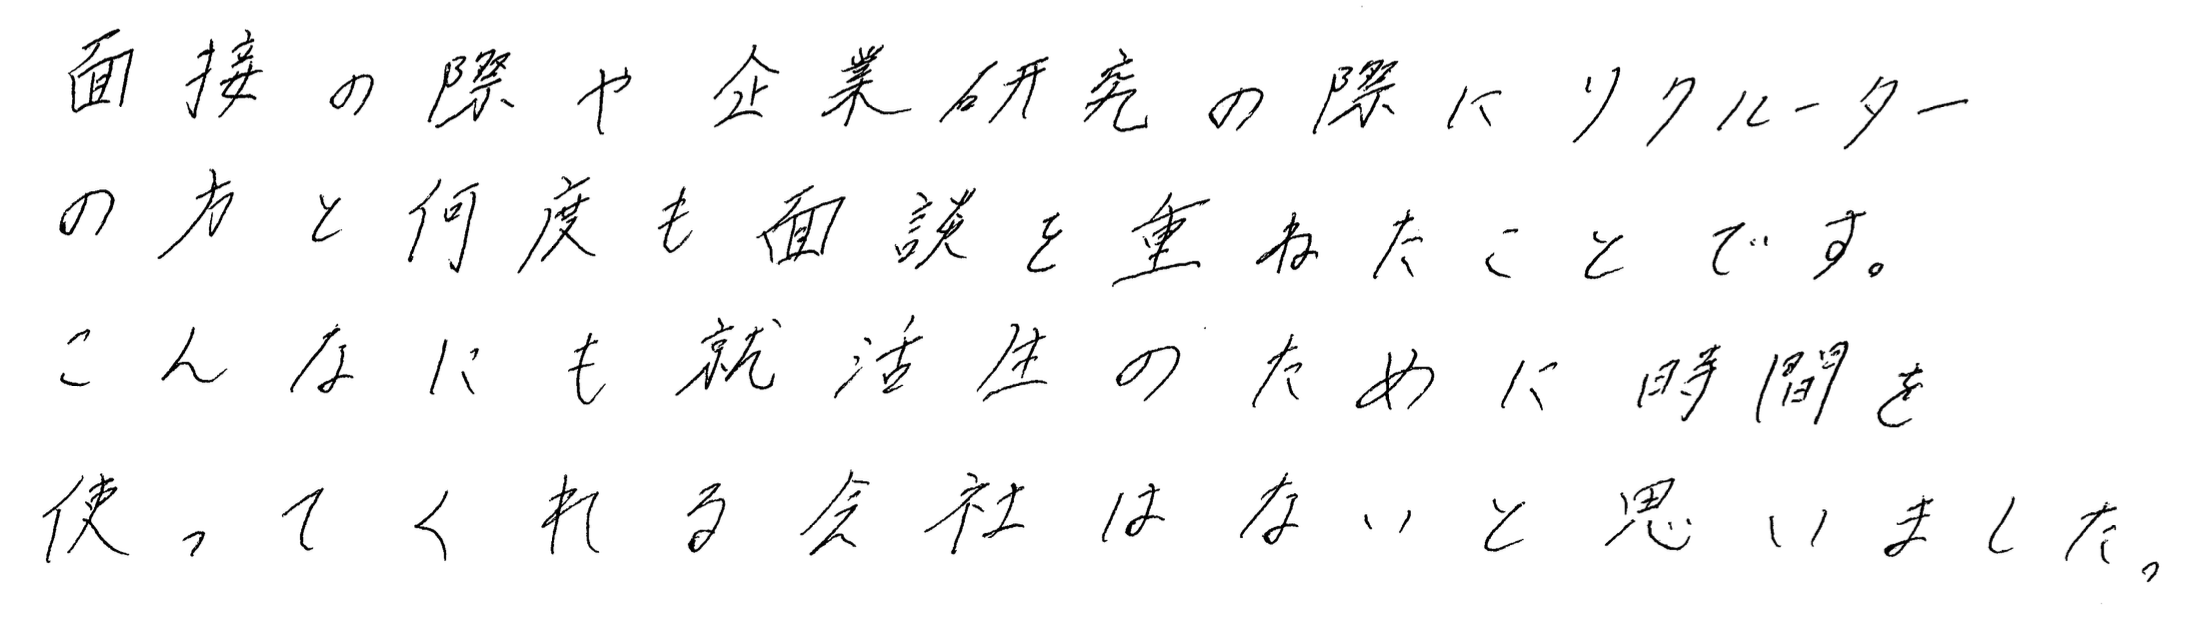 面接の際や企業研究の際にリクルーター
の方と何度も面談を重ねたことです。
こんなにも就活生のために時間を
使ってくれる会社はないと思いました。